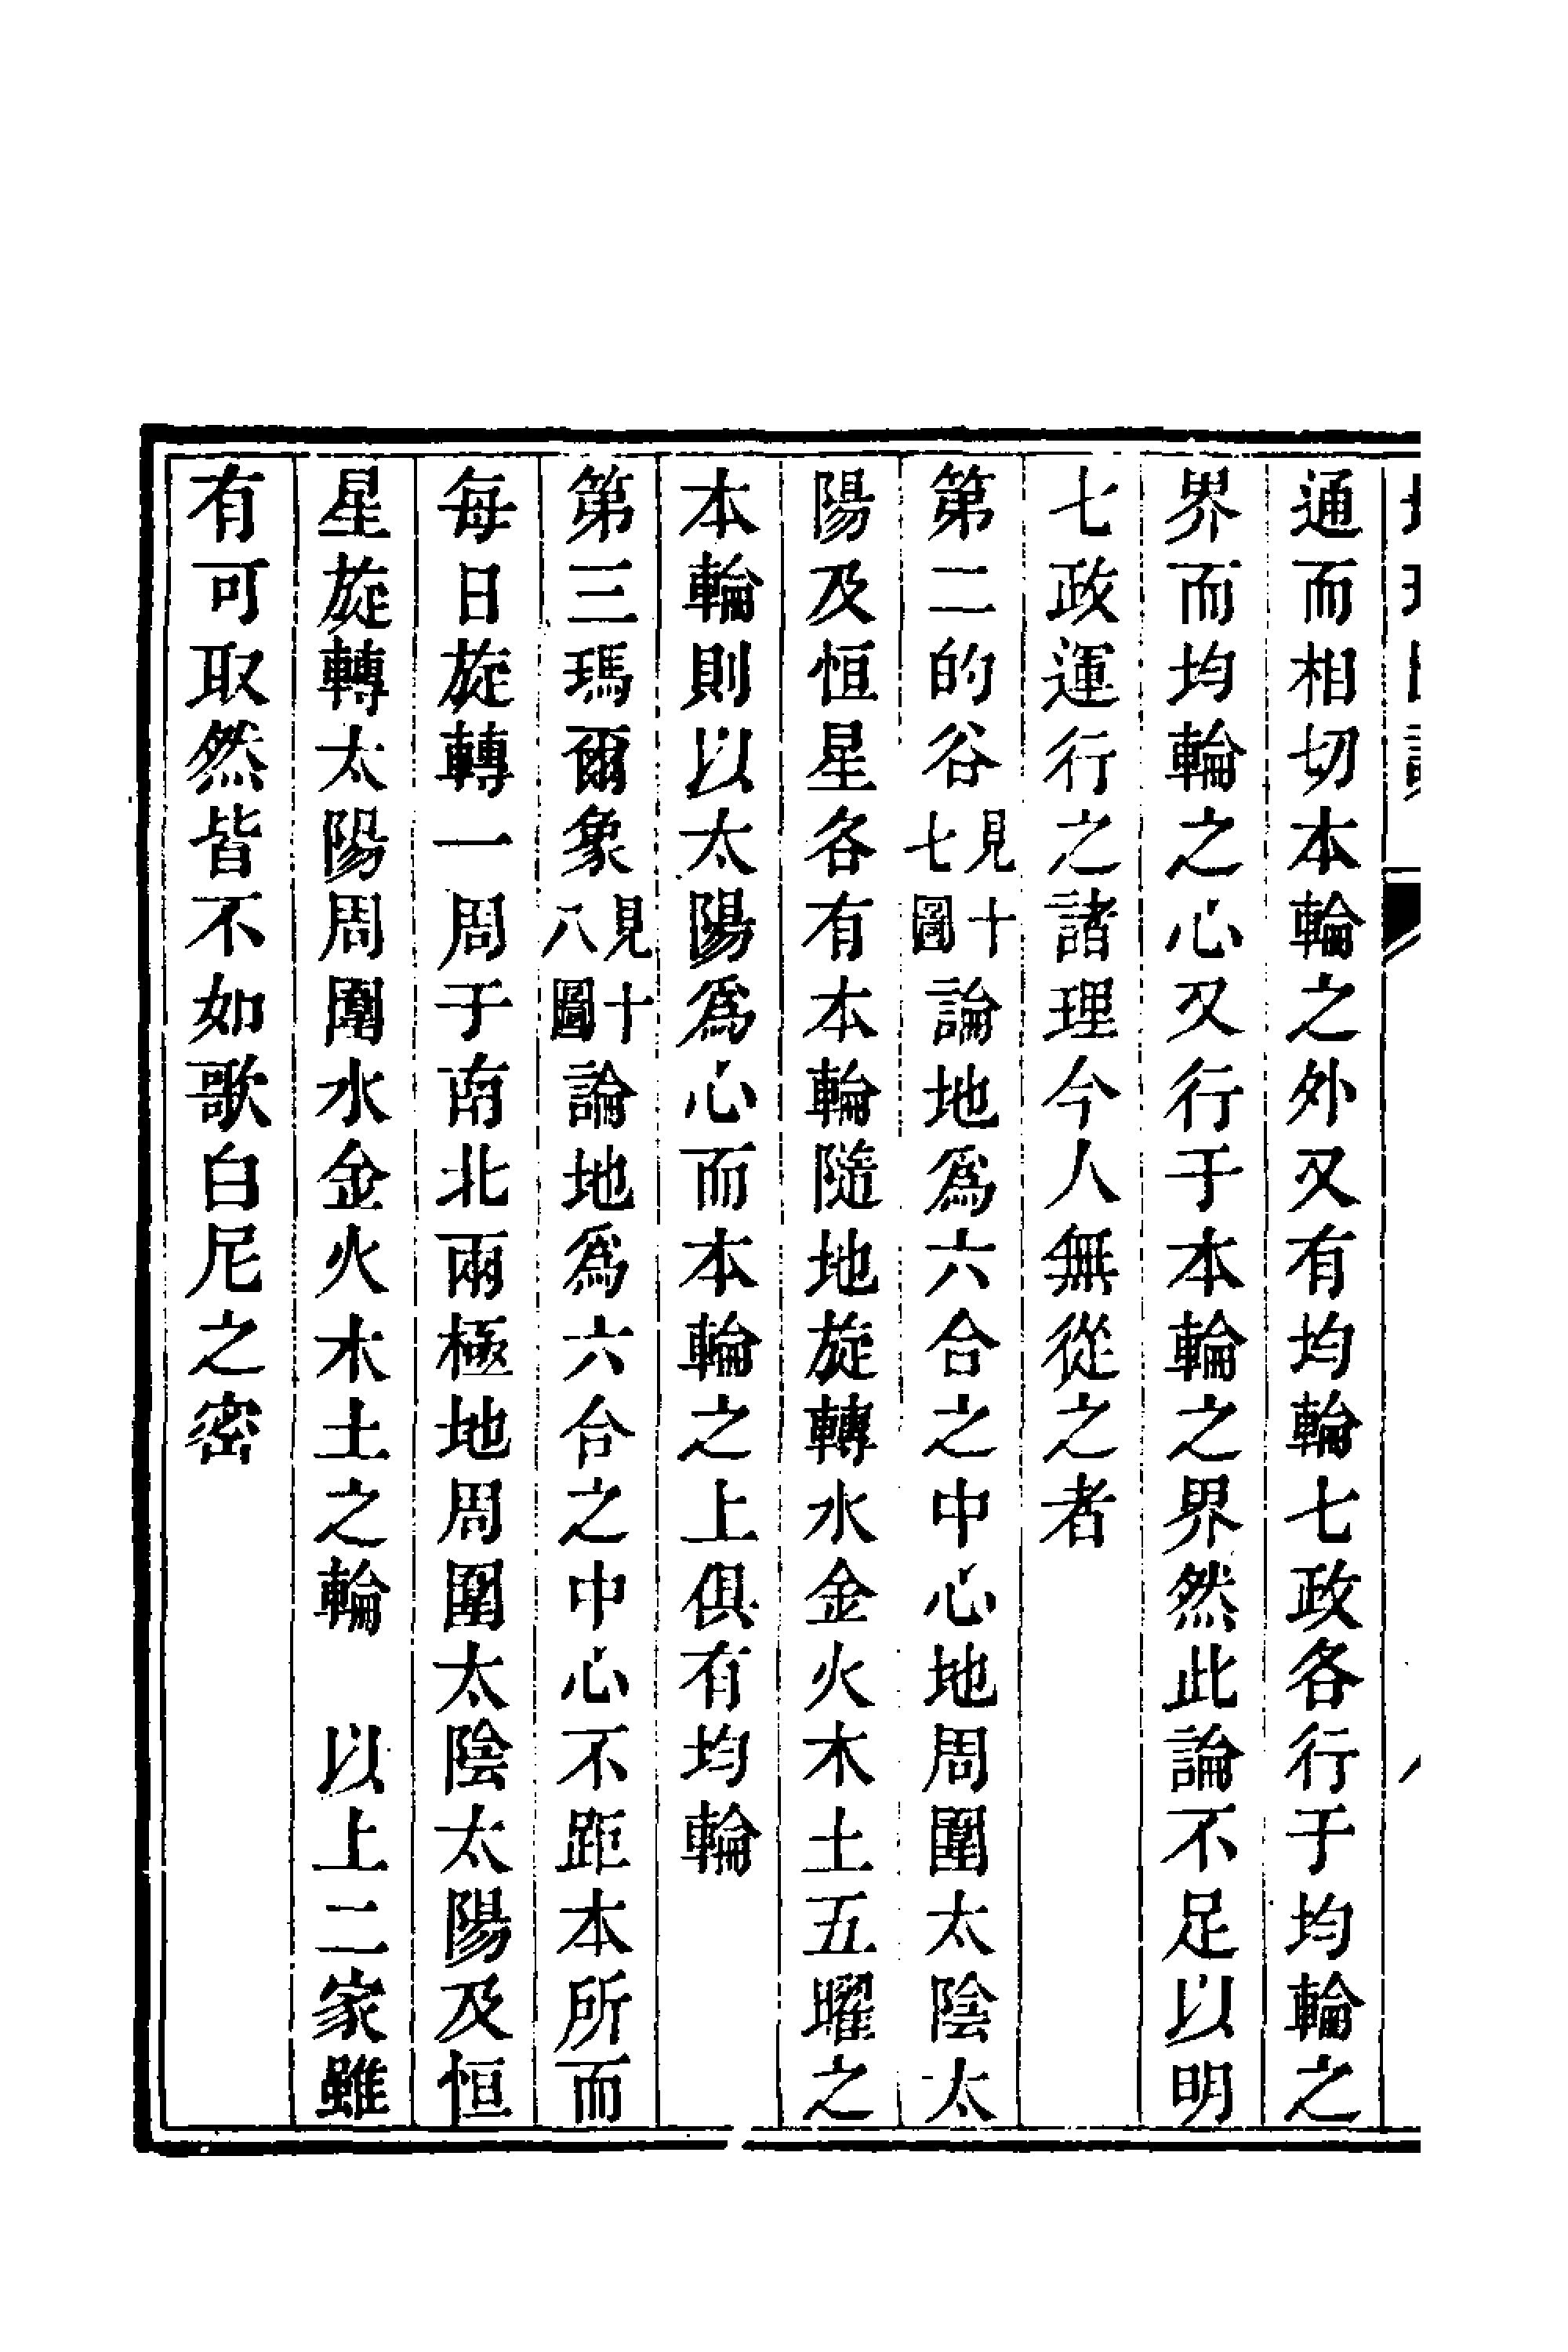 通而相切本輪之外又有均輪七政各行于均輪之
界而均輪之心又行于本輪之界然此論不足以明
七政運行之諸理今人無從之者
第二的谷見十七圖論地爲六合之中心地周圍太陰太
陽及恒星各有本輪隨地旋轉水金火木土五曜之
本輪則以太陽爲心而本輪之上俱有均輪
第三瑪爾象見十八圖論地爲六合之中心不距本所而
每日旋轉一周于南北兩極地周圍太陰太陽及恒
星旋轉太陽周圍水金火木土之輪　以上二家雖
有可取然皆不如歌白尼之密